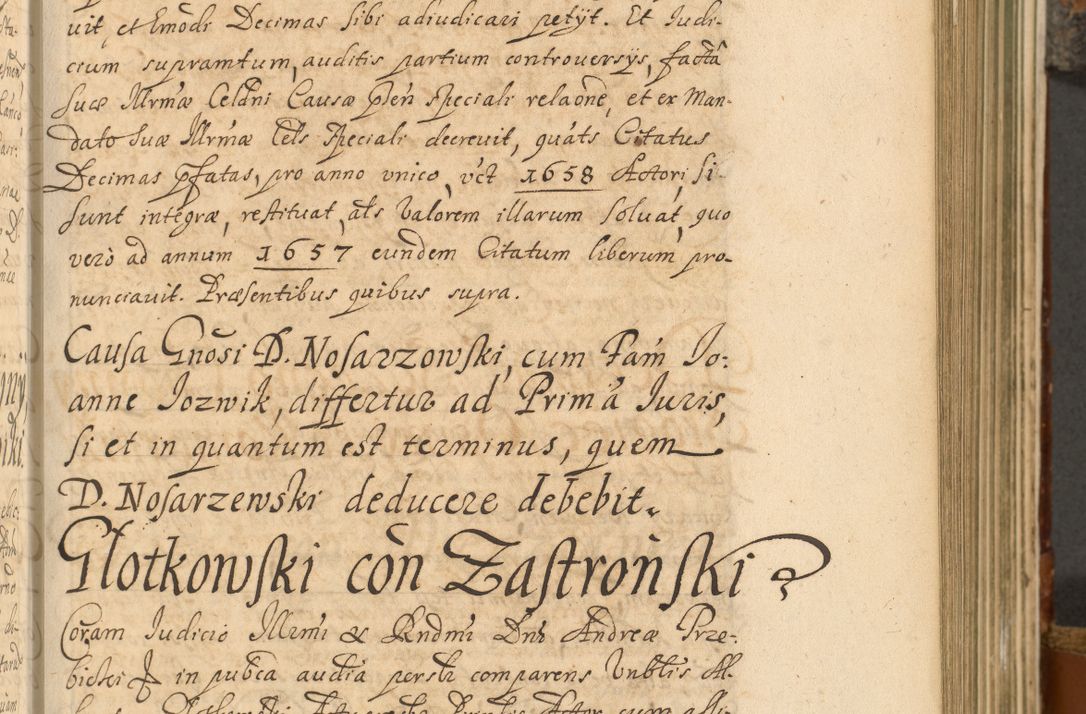 uit, et Em̄odi Decimas sibi adiudicari petÿt. Et Judi-
cium supramtum, auditis partium controversÿs, factâ
Suæ Illrmæ Celdni Causæ pñ speciali relaõne, et ex Man-
dato Suæ Illrmæ Cels speciali decrevit, quats Citatus
Decimas pfatas, pro anno unico, vct 1658 Actori, si
sunt integræ, restituat, als valorem illarum soluat, quo
verò ad annum 1657 eundem Citatum liberum pro-
nunciauit. Præsentibus quibus supra.
Causa Gnõsi D. Nosarzowski, cum Fam Jo:
anne Jozwik, differtur ad Primã Juris,
si et in quantum est terminus, quem
D. Nosarzewski deducere debebit.
Glotkowski cõn Zastroński
Coram Judicio Illrmi & Rndmi Dni Andreæ Trze-
bicki in pubca audia persli comparens Vnblis Al-